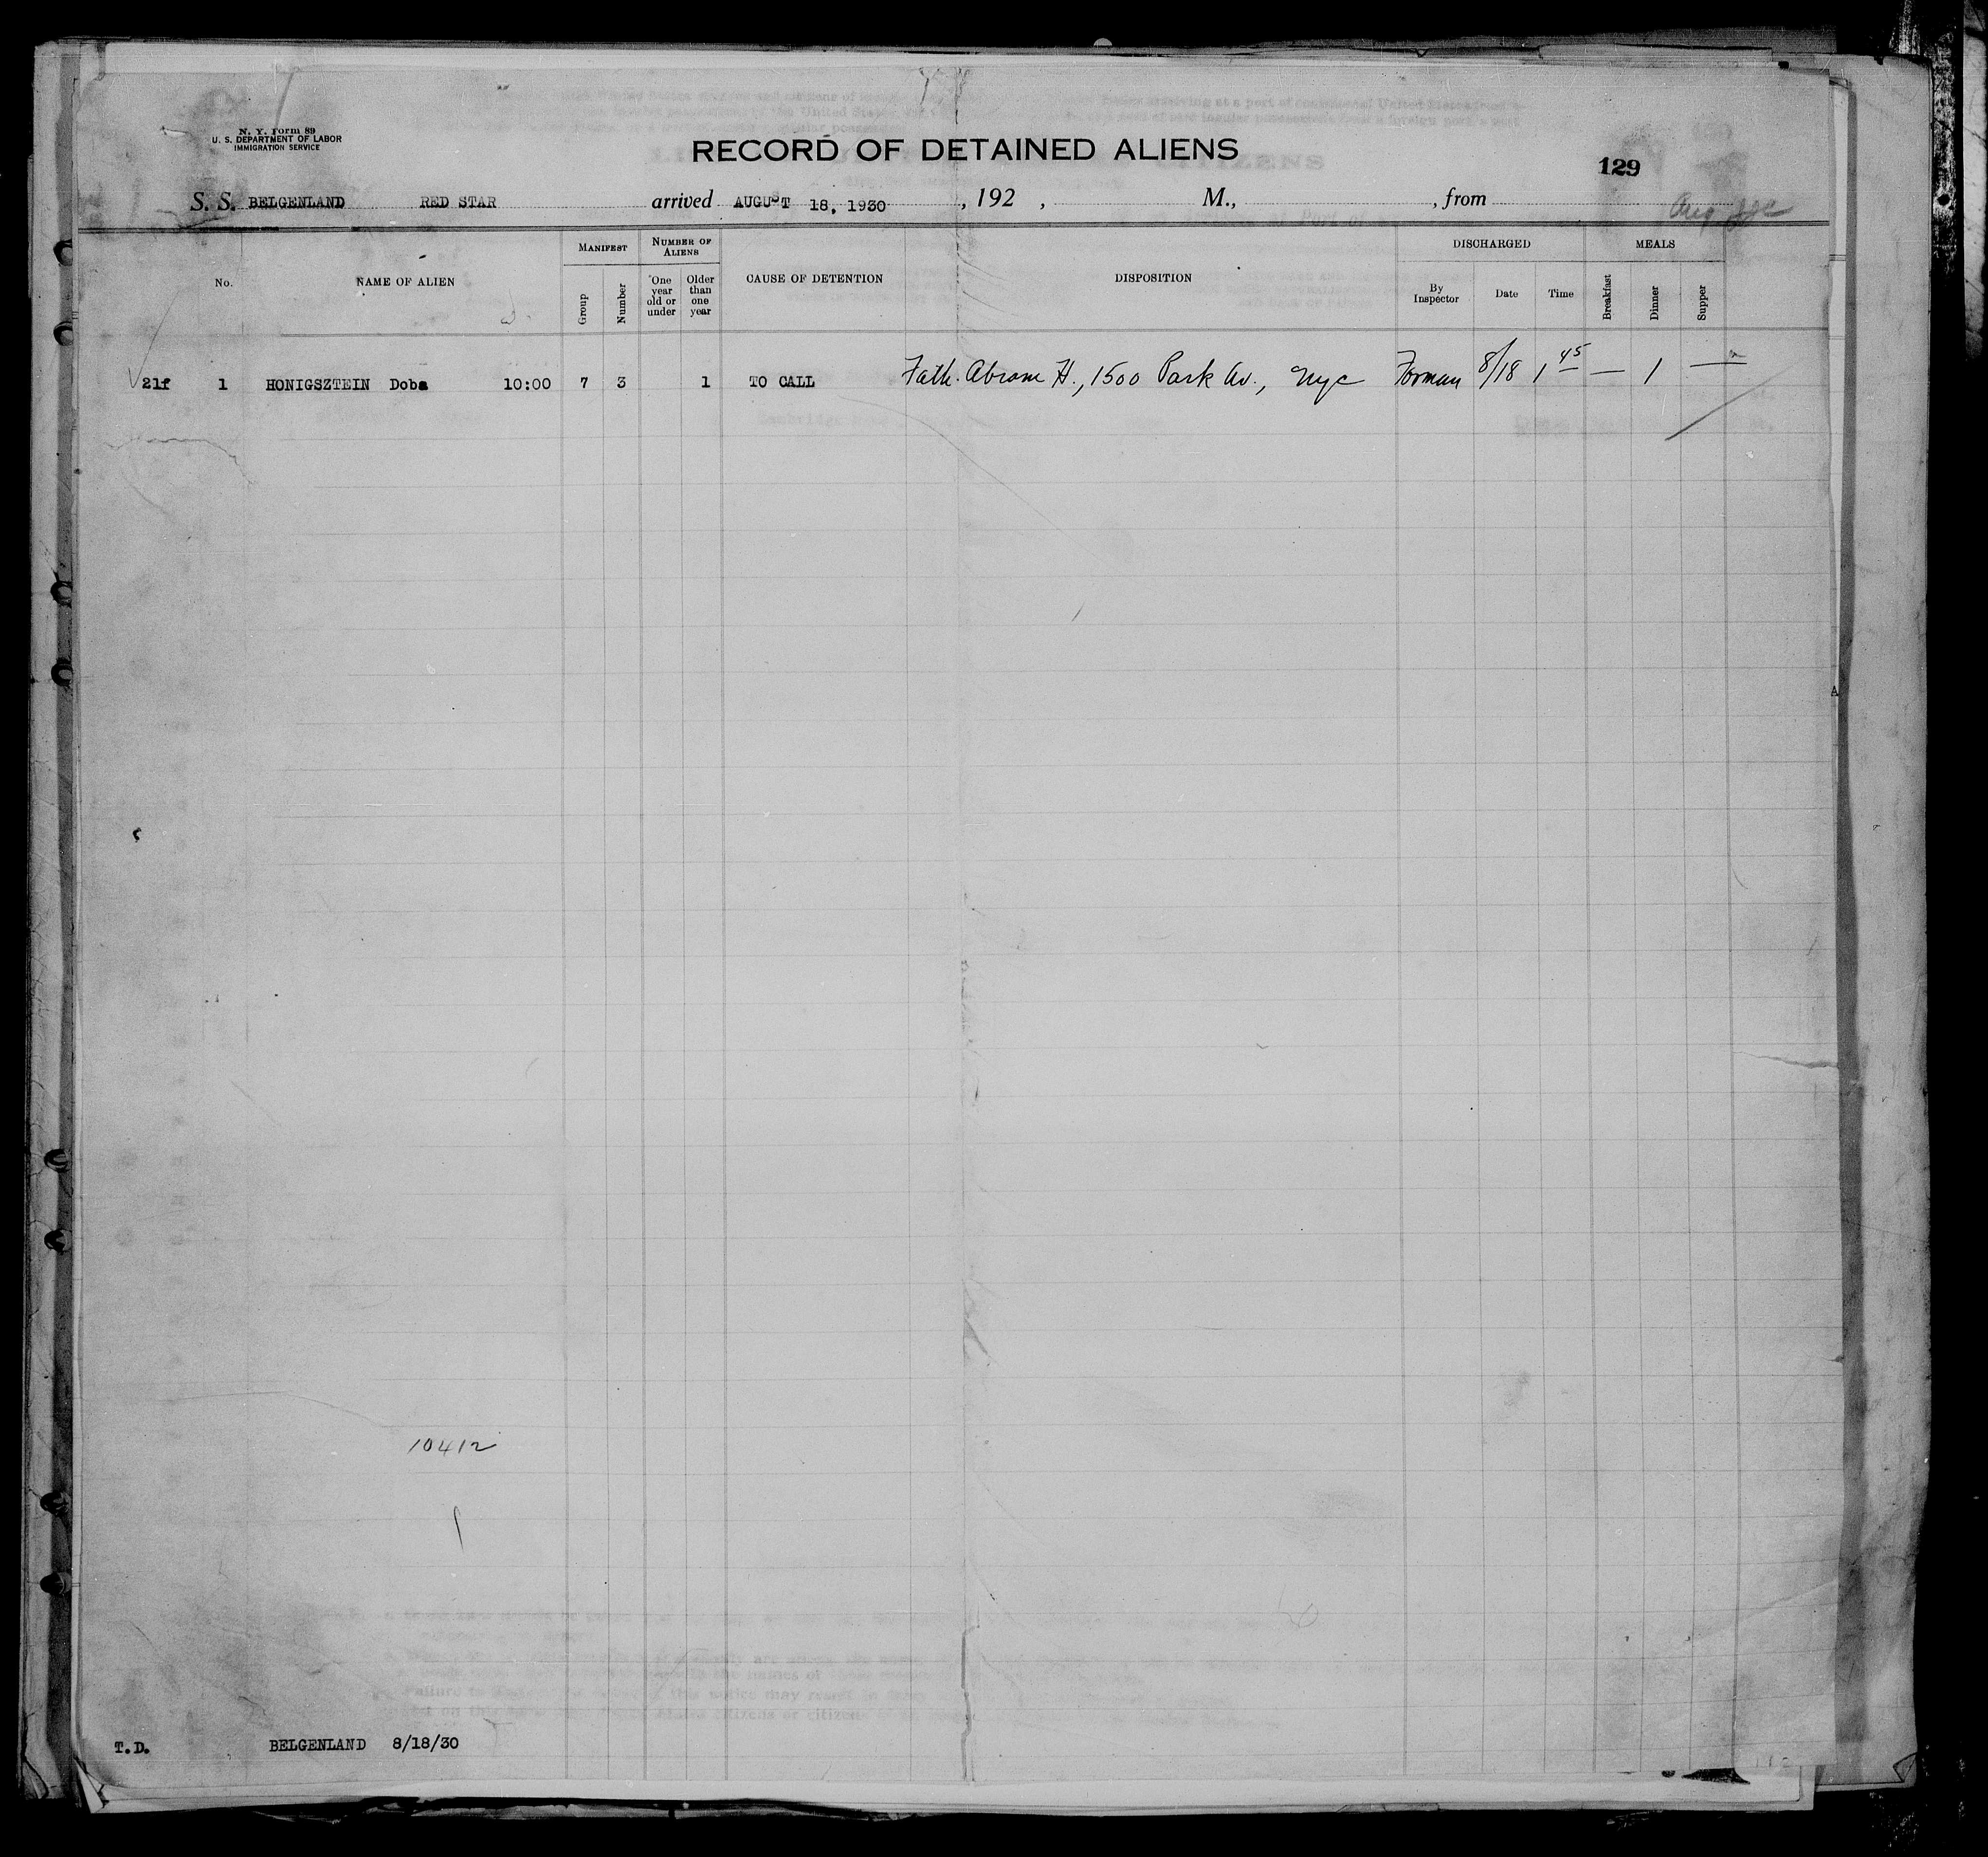 N. Y. Form 89
U. S. DEPARTMENT OF LABOR
IMMIGRATION SERVICE
RECORD OF DETAINED ALIENS
129
S. S. BELGENLAND RED STAR arrived AUGUST 18, 1930 , 192 , M., , from
Aug
No. NAME OF ALIEN MANIFEST Group Number NUMBER OF ALIENS One year old or under Older than one year CAUSE OF DETENTION DISPOSITION DISCHARGED By Inspector Date Time MEALS Breakfast Dinner Supper
21f 1 HONIGSZTEIN Doba 10:00 7 3 1 TO CALL Fath. Abram H., 1500 Park Av., Nyc Forman 8/18 1 45 — 1 —
10412
T.D. BELGENLAND 8/18/30